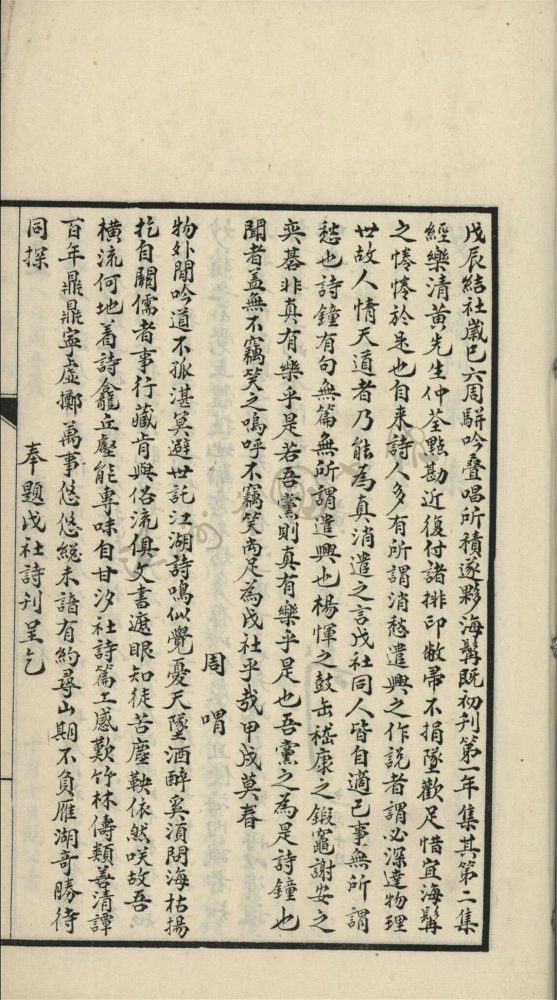 戊辰結社歲已六周駢吟疊唱所積遂夥海髯既初刊第一年集其第二集
經樂清黃先生仲荃點勘近復付諸排印敝帚不捐墜歡足惜宜海髯
之惓惓於是也自来詩人多有所謂消愁遣興之作説者謂必深達物理
世故人情天道者乃能為真消遣之言戊社同人皆自適己事無所謂
愁也詩鐘有句無篇無所謂遣興也楊惲之鼓缶嵇康之鍛竈謝安之
奕碁非真有樂乎是若吾黨則真有樂乎是也吾黨之為是詩鐘也
聞者盖無不竊笑之嗚呼不竊笑尚足為戊社乎哉甲戌莫春
周喟
物外閒吟道不孤湛冥避世託江湖詩鳴似覺憂天墜酒醉奚須問海枯揚
扢自關儒者事行藏肯與俗流俱文書遮眼知徒苦塵鞅依然咲故吾
橫流何地着詩龕丘壑能專味自甘汐社詩篇工感歎竹林儔類善清譚
百年鼎鼎寧虛擲萬事悠悠總未諳有約尋山期不負雁湖奇勝待
同探
奉題戊社詩刊呈乞